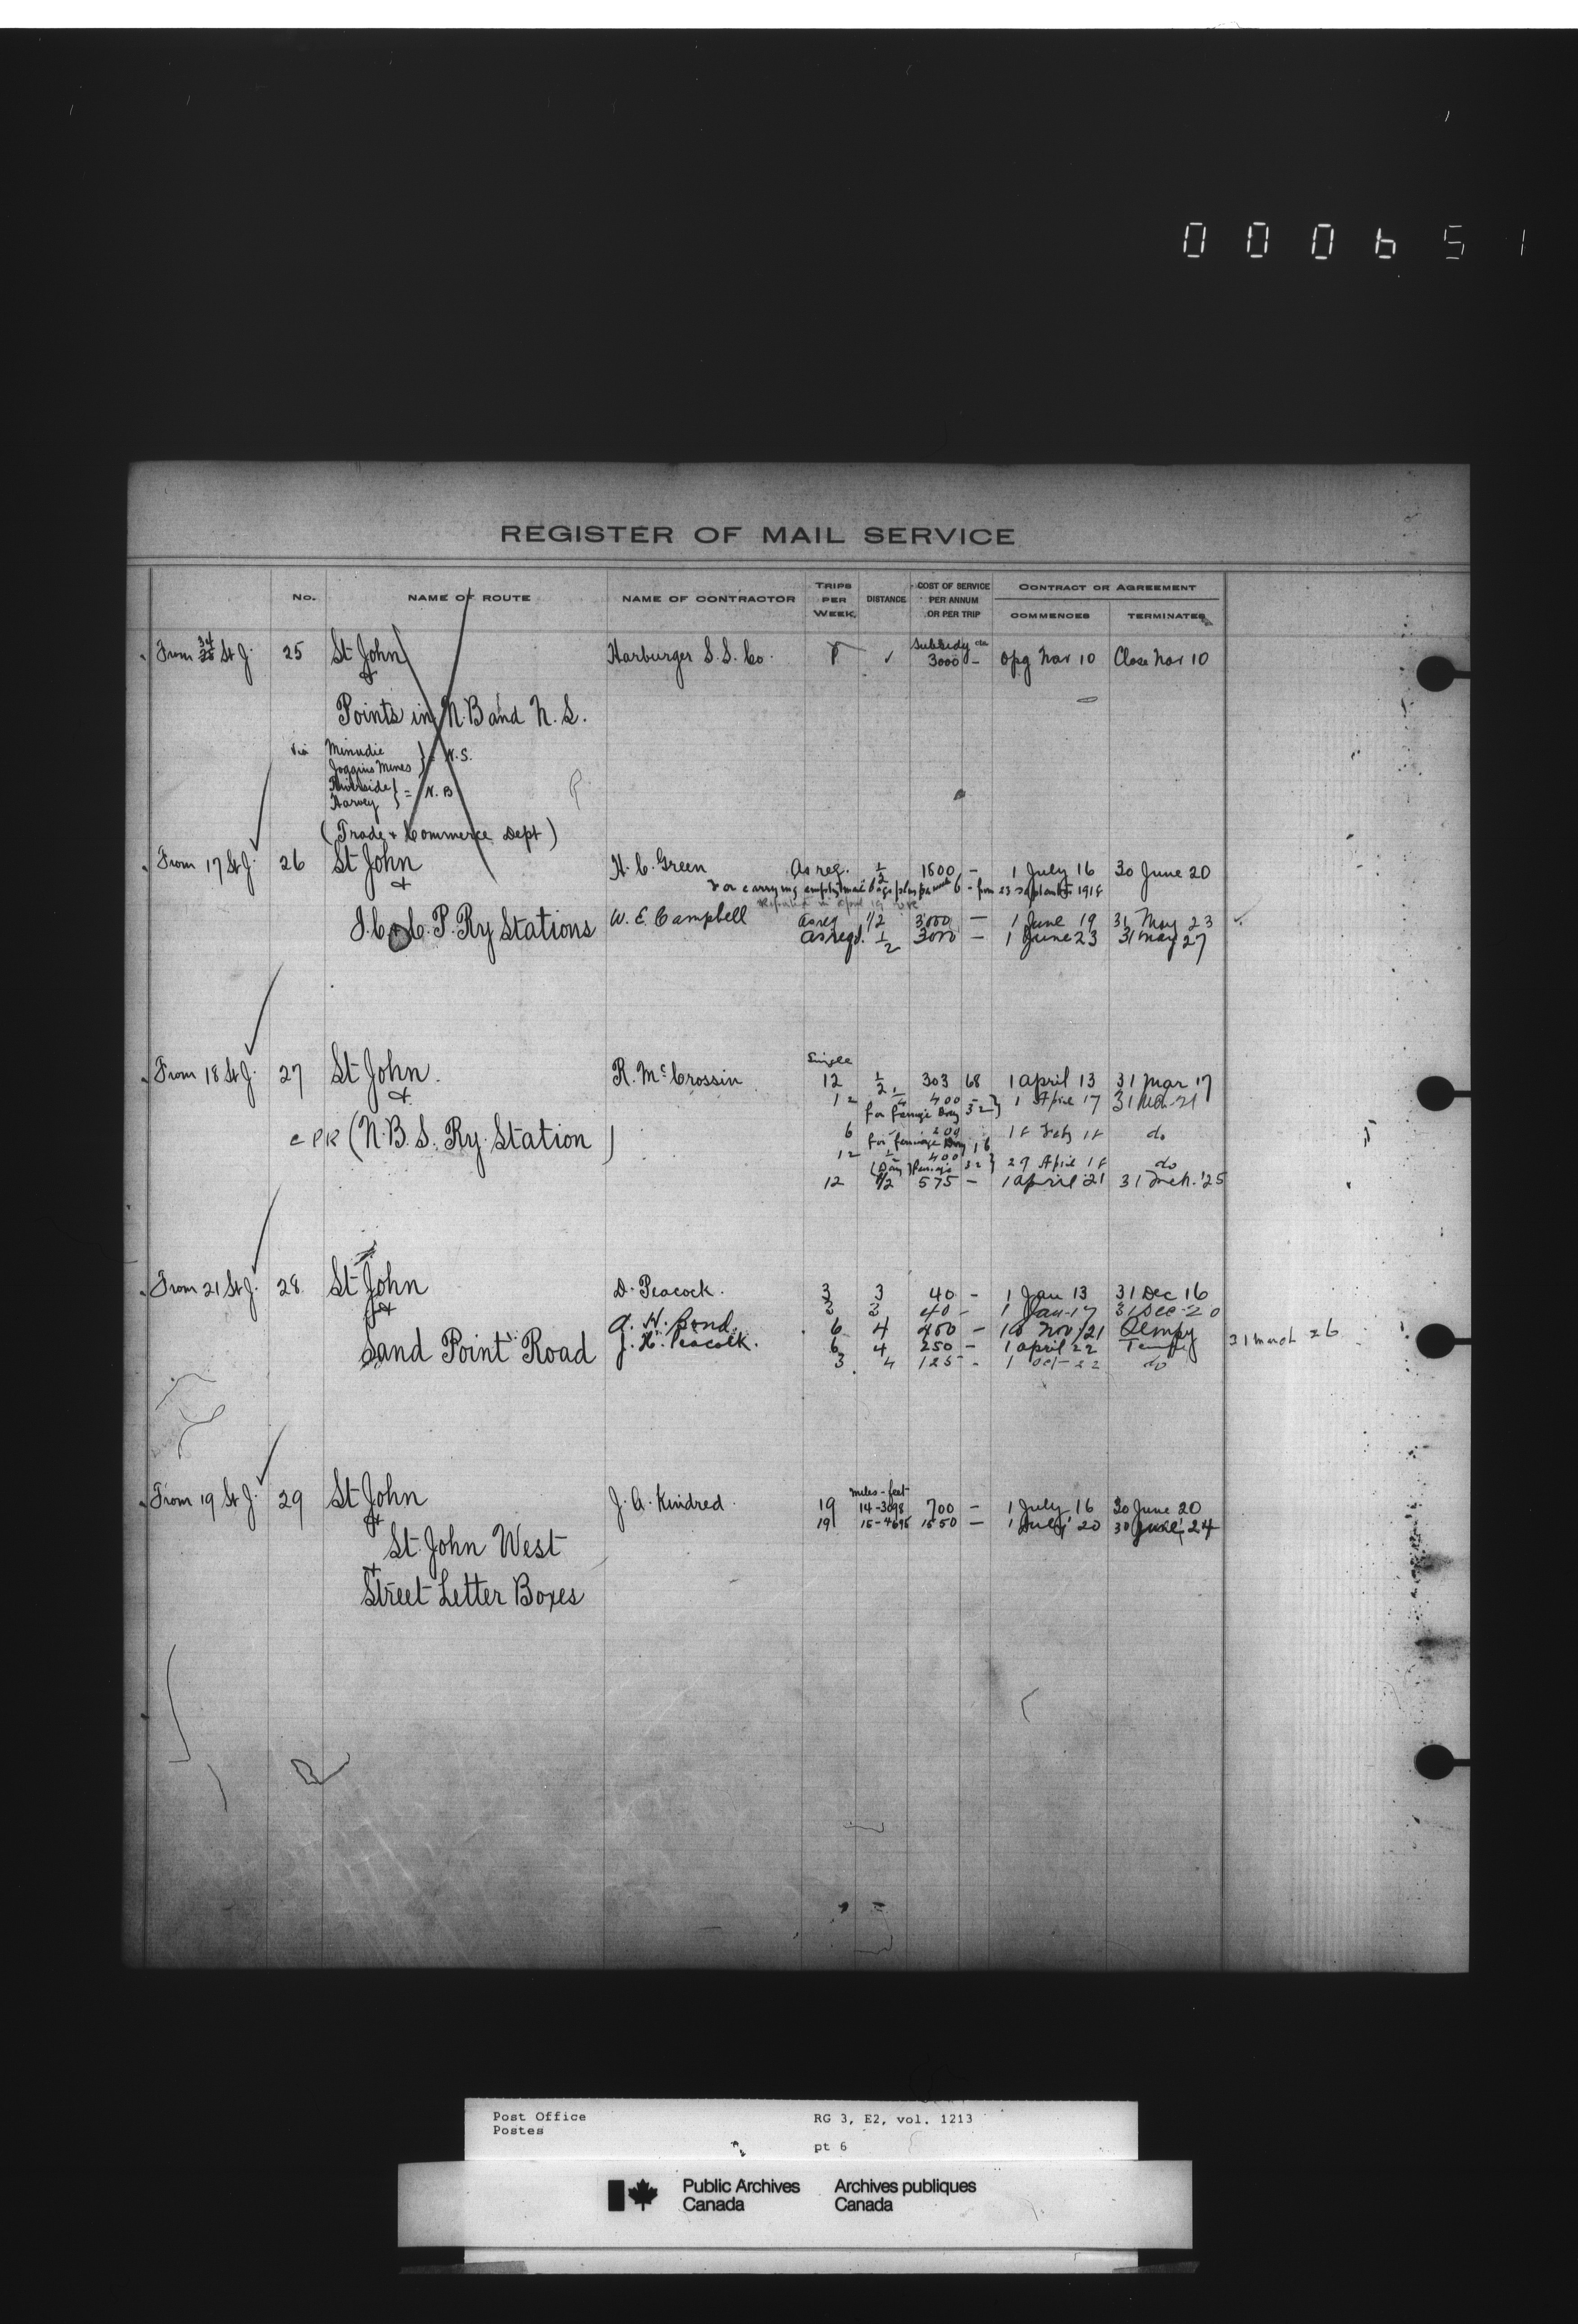 000651
REGISTER OF MAIL SERVICE
No. NAME OF ROUTE NAME OF CONTRACTOR TRIPS PER WEEK DISTANCE COST OF SERVICE PER ANNUM OR PER TRIP CONTRACT OR AGREEMENT COMMENCES TERMINATES
From 34 St J. 25 St John Harburger S.S. Co. Subsidy 3000 - Opg Nav 10 Close Nav 10
&
Points in N.B and N.S.
via Minudie
Joggins Mines } = N.S.
Riverside
Harvey } = N.B
(Trade & Commerce Dept)
From 17 St J. 26 St John H. C. Green As req. 1/2 1800 - 1 July 16 30 June 20
& For carrying empty mail bags 6 - from 23 1918
I.C. & C.P. Ry Stations W. E. Campbell As req 1/2 3000 - 1 June 19 31 May 23
As reqd. 1/2 3000 - 1 June 23 31 May 27
Single
From 18 St J. 27 St John. R. McCrossin 12 1/2 303 68 1 April 13 31 Mar 17
& 12 1/4 400 1 April 17 31 Mar 21
for Ferriage 32 }
CPR (N.B.S. Ry. Station) 6 200 18 Feby 18 do
for ferriage 16
12 400 29 April 18 do
32 }
12 1/2 575 - 1 April '21 31 Mch. '25
From 21 St J. 28 St John D. Peacock. 3 3 40 - 1 Jan 13 31 Dec 16
& 3 3 40 - 1 Jan 17 31 Dec 20
A. H. Bond. 6 4 450 - 16 Nov/21 Tempy
Sand Point Road J. H. Peacock. 6 4 250 - 1 April 22 Tempy 31 March 26
3 4 125 - 1 Oct 22 do
miles - feet
From 19 St J. 29 St John J. A. Kindred. 19 14-3098 700 - 1 July 16 30 June 20
& 19 15-4695 1550 - 1 July 20 30 June, 24
St. John West
+
Street Letter Boxes
Post Office RG 3, E2, vol. 1213
Postes
pt 6
Public Archives Archives publiques
Canada Canada